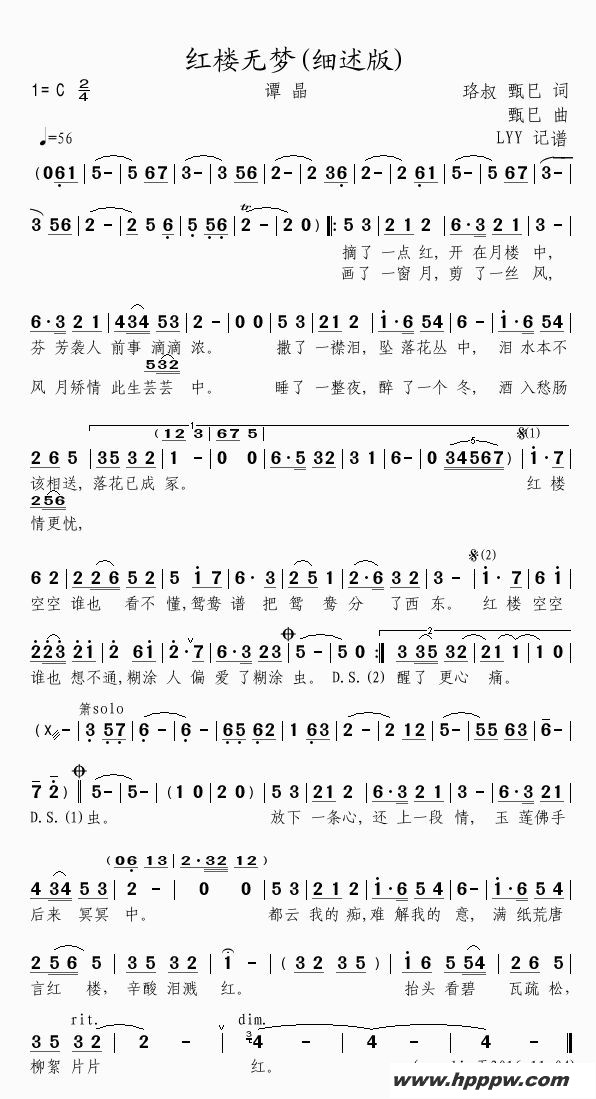 红楼无梦(细述版)
1= C 2/4 谭 晶 珞叔 甄巳 词
甄巳 曲
♩=56 LYY 记谱
(061|5-|5 67|3-|3 56|2-|2 36|2-|2 61|5-|5 67|3-|
3 56|2-|2 5 6|5 56|2-|2 0)‖:5 3|2 1 2|6·3 2 1|3 -|
摘了 一点 红, 开 在月楼 中,
画了 一窗 月, 剪 了一丝 风,
6·3 2 1|434 53|2-|0 0|5 3|21 2|1·6 54|6-|1·6 54|
芬 芳袭人 前事 滴滴 浓。 撒了 一襟泪, 坠 落花丛 中, 泪 水本不
532
风 月矫情 此生芸芸 中。 睡了 一整夜, 醉 了一个 冬, 酒 入愁肠
1
(12 3|67 5| 5 𝄋(1)
2 6 5|35 3 2|1 -|0 0|6·5 32|3 1|6-|0 34567)|1·7|
该相送, 落花已成 冢。 红 楼
256
情更忧,
𝄋(2)
6 2|2 26 5 2|5 17|6·3|25 1|2·6 3 2|3 -|1·7|6 1|
空空 谁也 看不 懂,鸳鸯 谱 把 鸳 鸯 分 了西 东。 红 楼 空空
2
223 21|2 61|2·7|6·3 23|5-|5 0:|3 35 32|21 1|1 0|
谁也 想不通,糊涂 人 偏 爱 了糊涂 虫。 D.S.(2) 醒了 更心 痛。
箫solo
(X-|3 57|6-|6-|65 62|1 63|2-|2 12|5-|55 63|6-|
7 2)‖5-|5-|(1 0|2 0)|53 212|6·3 21|3-|6·3 21|
D.S.(1)虫。 放下 一条心, 还 上一段 情, 玉 莲佛手
(06 13|2·32 12)
4 34 5 3|2 -|0 0|5 3|2 1 2|1·6 5 4|6-|1·6 5 4|
后来 冥冥 中。 都云 我的 痴,难 解我的 意, 满 纸荒唐
2 5 6 5|3 5 3 2|1 -|(3 2 3 5)|1 6 5 4|2 6 5|
言红 楼, 辛酸 泪溅 红。 抬头 看碧 瓦疏 松,
rit. dim.
3 5 3 2|2 -|2 -|4 -|4 -|4 -‖
柳絮 片片 红。
www.hpppw.com